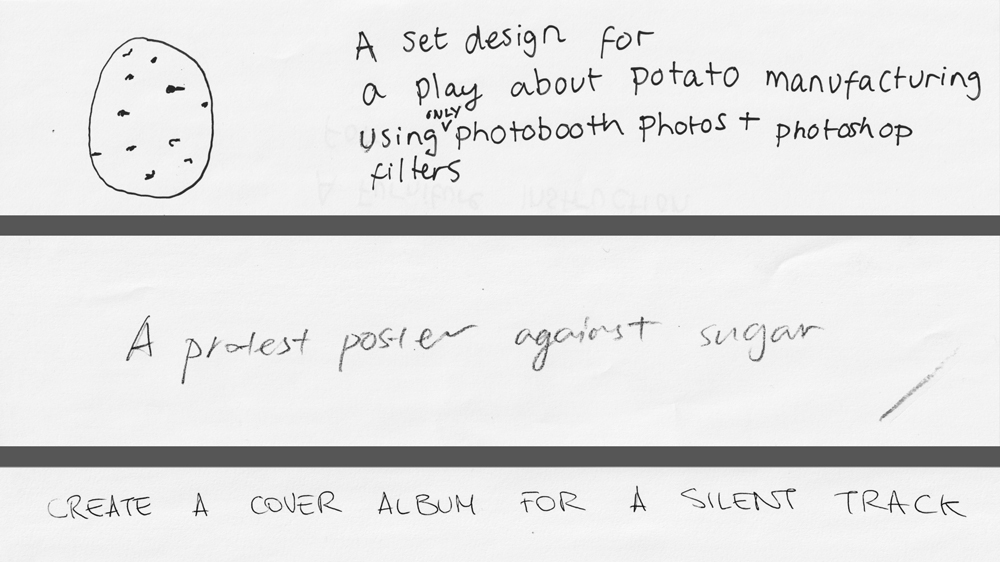 A set design for
a play about potato manufacturing
using ONLY photobooth photos + photoshop
filters
A protest poster against sugar
CREATE A COVER ALBUM FOR A SILENT TRACK